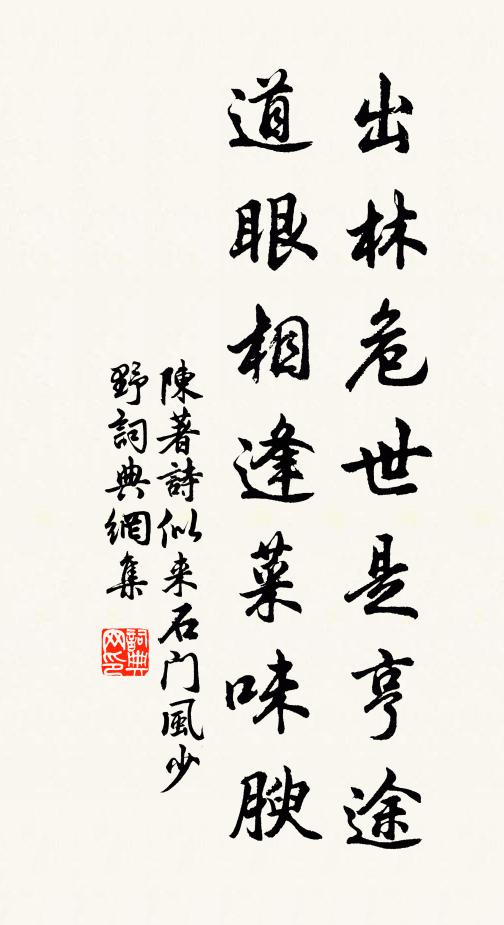 出林危世是亨途
道眼相逢菜味腴
陳著詩似来石门風少
野詞典網集
詞典网印